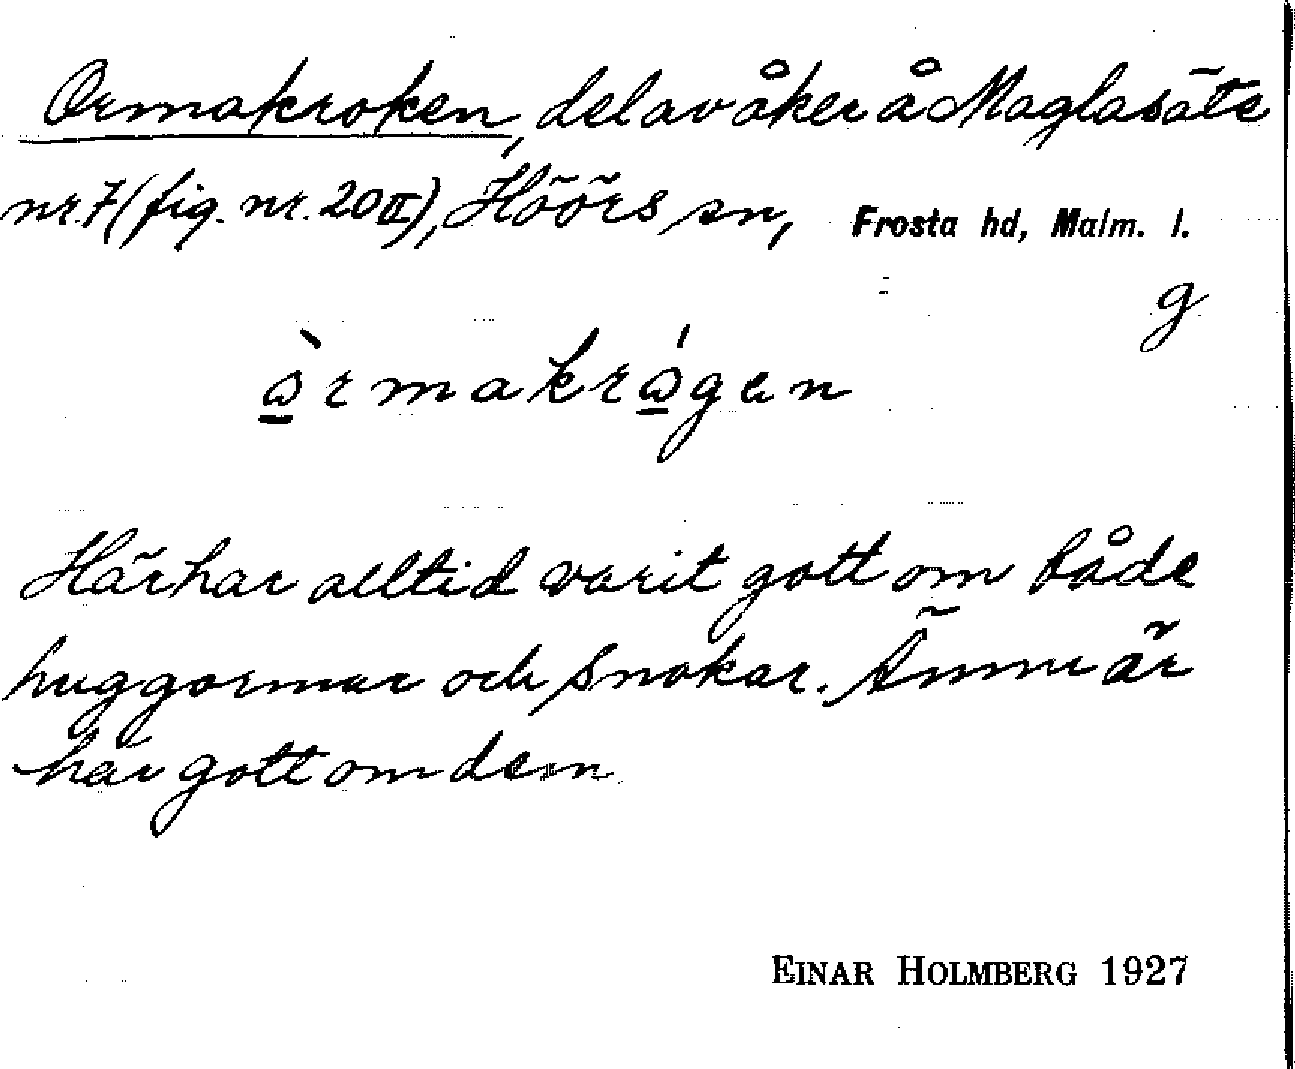 Ormakroken, del av åker å Maglasäte
nr. 7 (fig. nr. 20 II), Höörs sn, Frosta hd, Malm. l.
g
ὼ̲rmakrώ̲gen
Här har alltid varit gott om både
huggormar och snokar. Ännu är
här gott om dem
EINAR HOLMBERG 1927